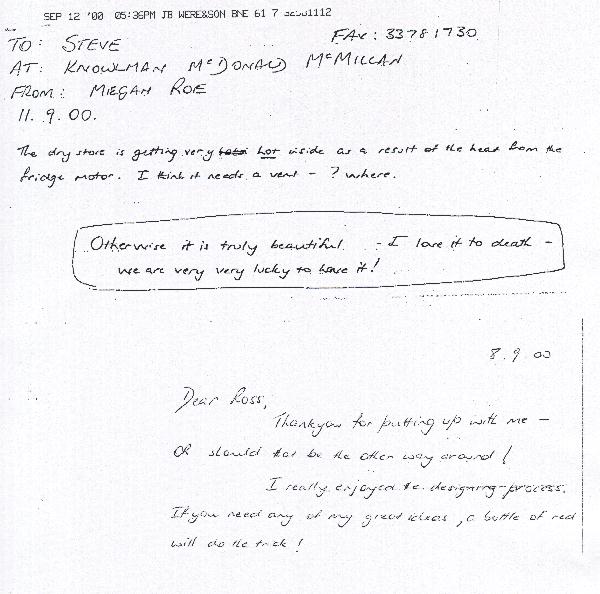 SEP 12 '00 05:36PM JB WERE&SON BNE 61 7
FAX: 33781730
TO: STEVE
AT: KNOWLMAN McDONALD McMILLAN
FROM: MEGAN ROE
11.9.00.
The dry store is getting very hot inside as a result of the heat from the
fridge motor. I think it needs a vent - ? where.
Otherwise it is truly beautiful. - I love it to death -
we are very very lucky to have it!
8.9.00
Dear Ross,
Thankyou for putting up with me -
OR should that be the other way around!
I really enjoyed the designing-process.
If you need any of my great ideas, a bottle of red
will do the trick!